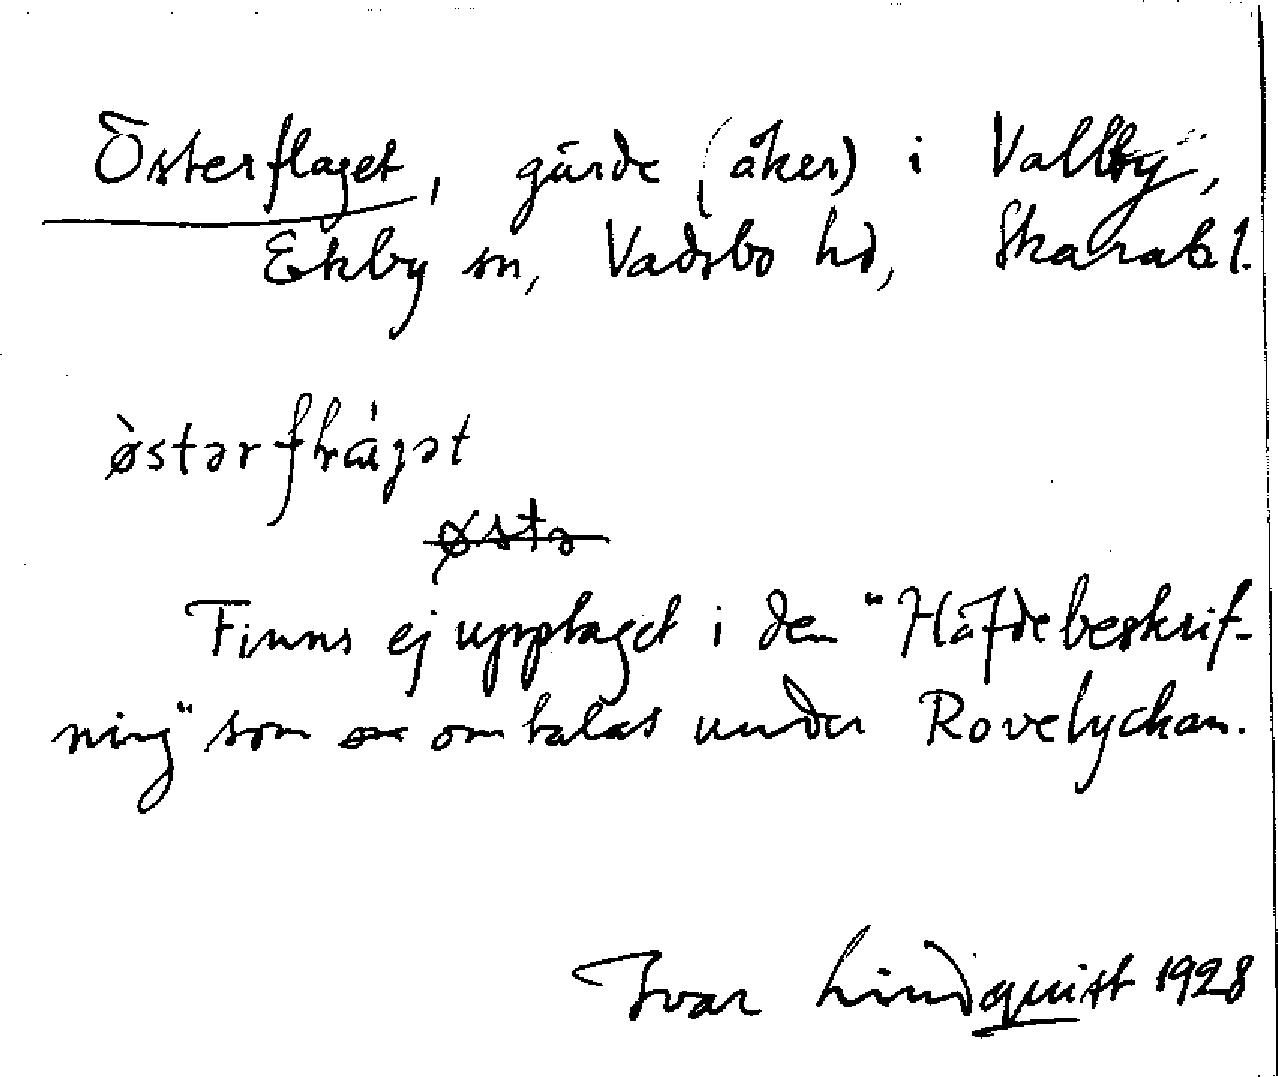 Österflaget, gärde (åker) i Vallby,
Ekby sn, Vadsbo hd, Skarab. l.
Finns ej upptaget i den "Häfdebeskrif-
ning" som omtalas under Rovelyckan.
Ivar Lindquist 1928